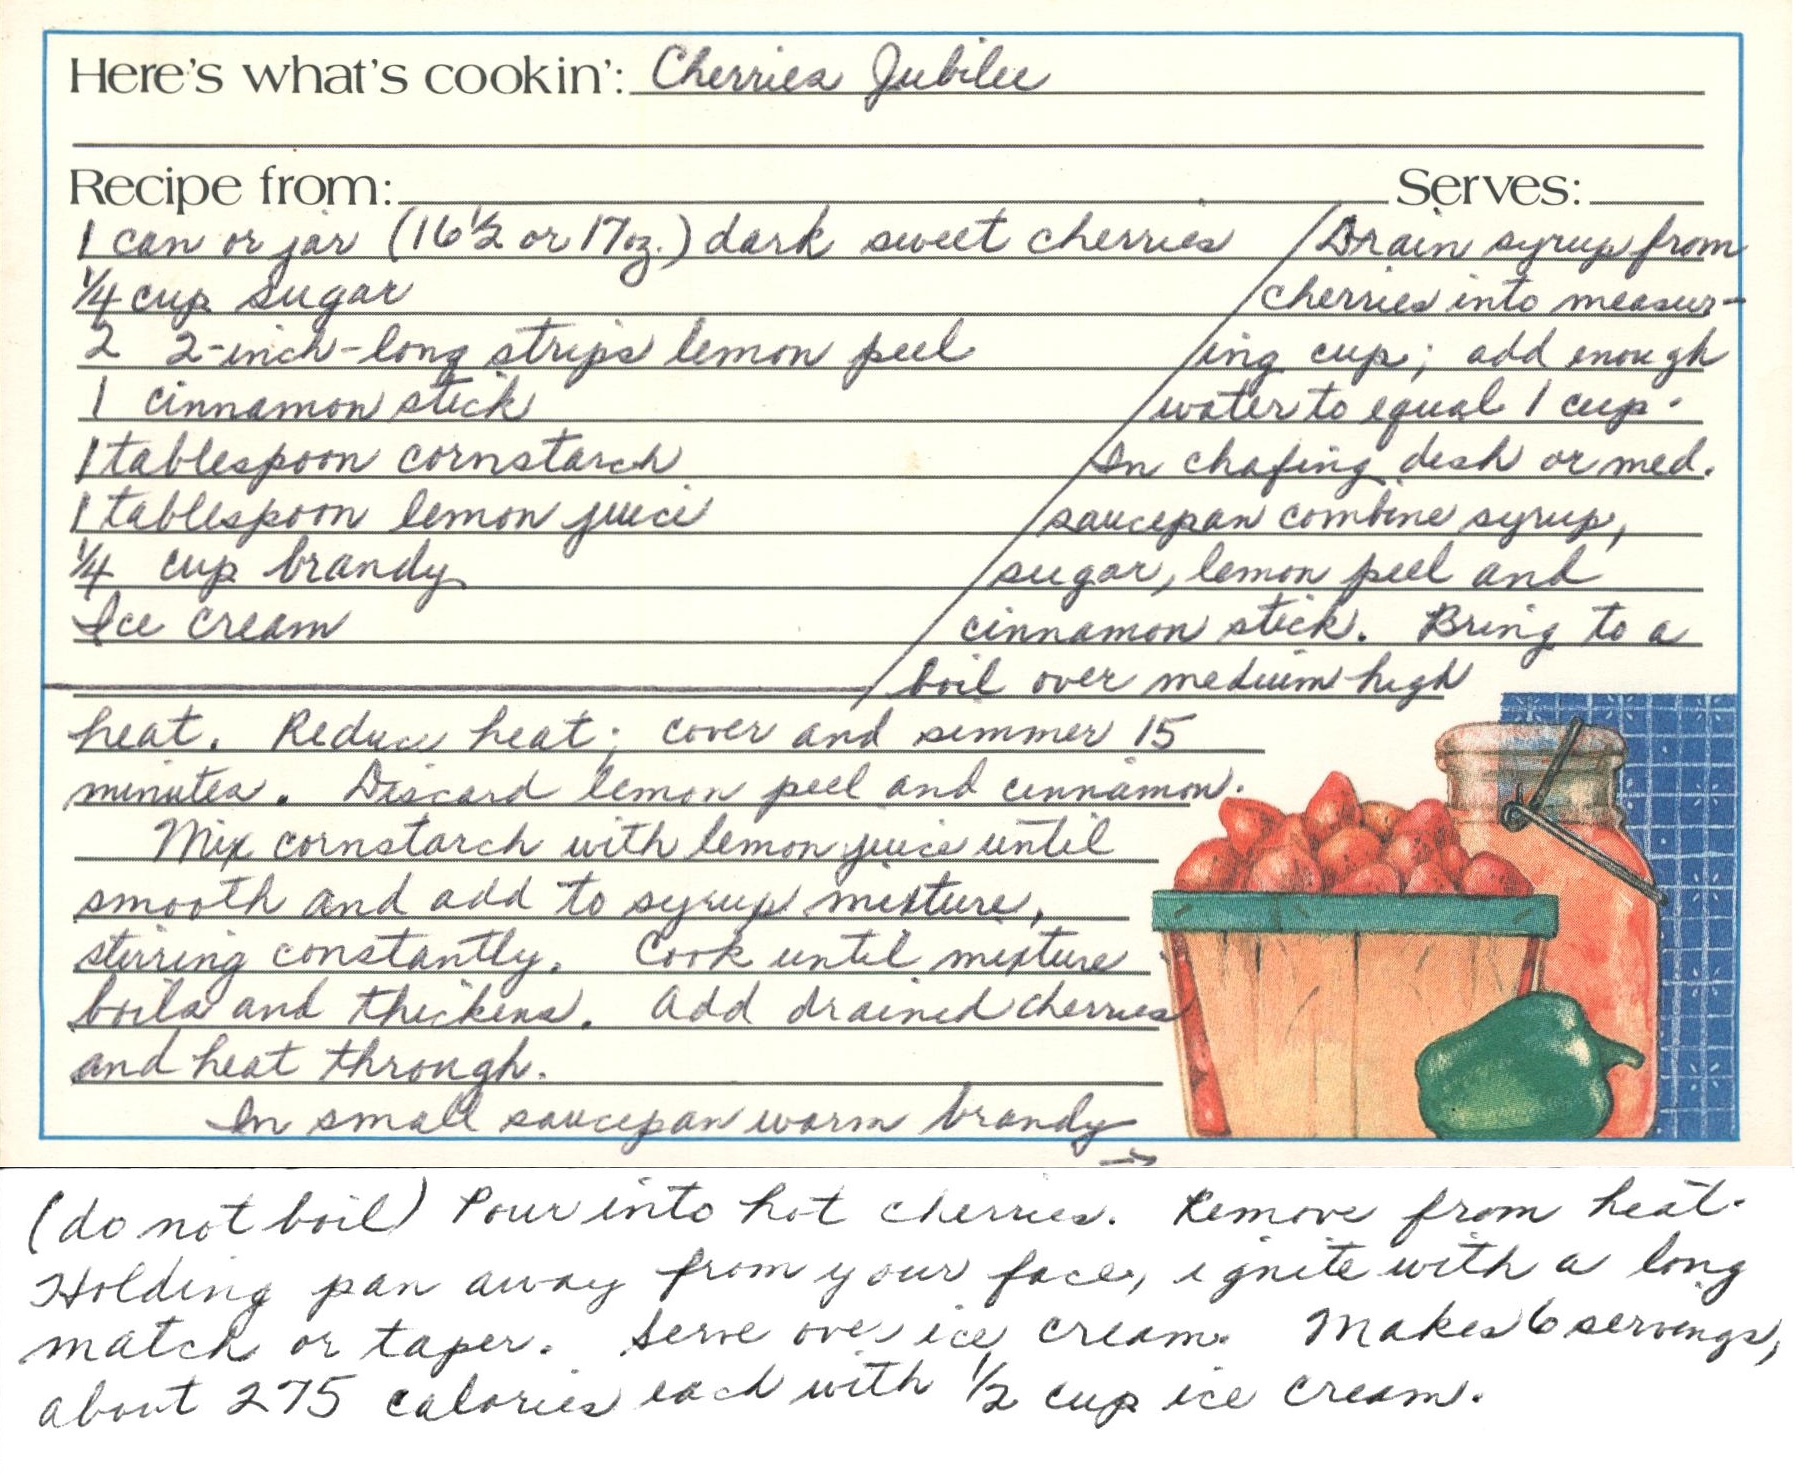 Here's what's cookin': Cherries Jubilee
Recipe from: Serves:
1 can or jar (16 1/2 or 17 oz.) dark sweet cherries
1/4 cup sugar
2 2-inch-long strips lemon peel
1 cinnamon stick
1 tablespoon cornstarch
1 tablespoon lemon juice
1/4 cup brandy
Ice cream
Drain syrup from
cherries into measur-
ing cup; add enough
water to equal 1 cup.
In chafing dish or med.
saucepan combine syrup,
sugar, lemon peel and
cinnamon stick. Bring to a
boil over medium-high
heat. Reduce heat; cover and simmer 15
minutes. Discard lemon peel and cinnamon.
Mix cornstarch with lemon juice until
smooth and add to syrup mixture,
stirring constantly. Cook until mixture
boils and thickens. Add drained cherries
and heat through.
In small saucepan warm brandy →
(do not boil) Pour into hot cherries. Remove from heat.
Holding pan away from your face, ignite with a long
match or taper. Serve over ice cream. Makes 6 servings,
about 275 calories each with 1/2 cup ice cream.